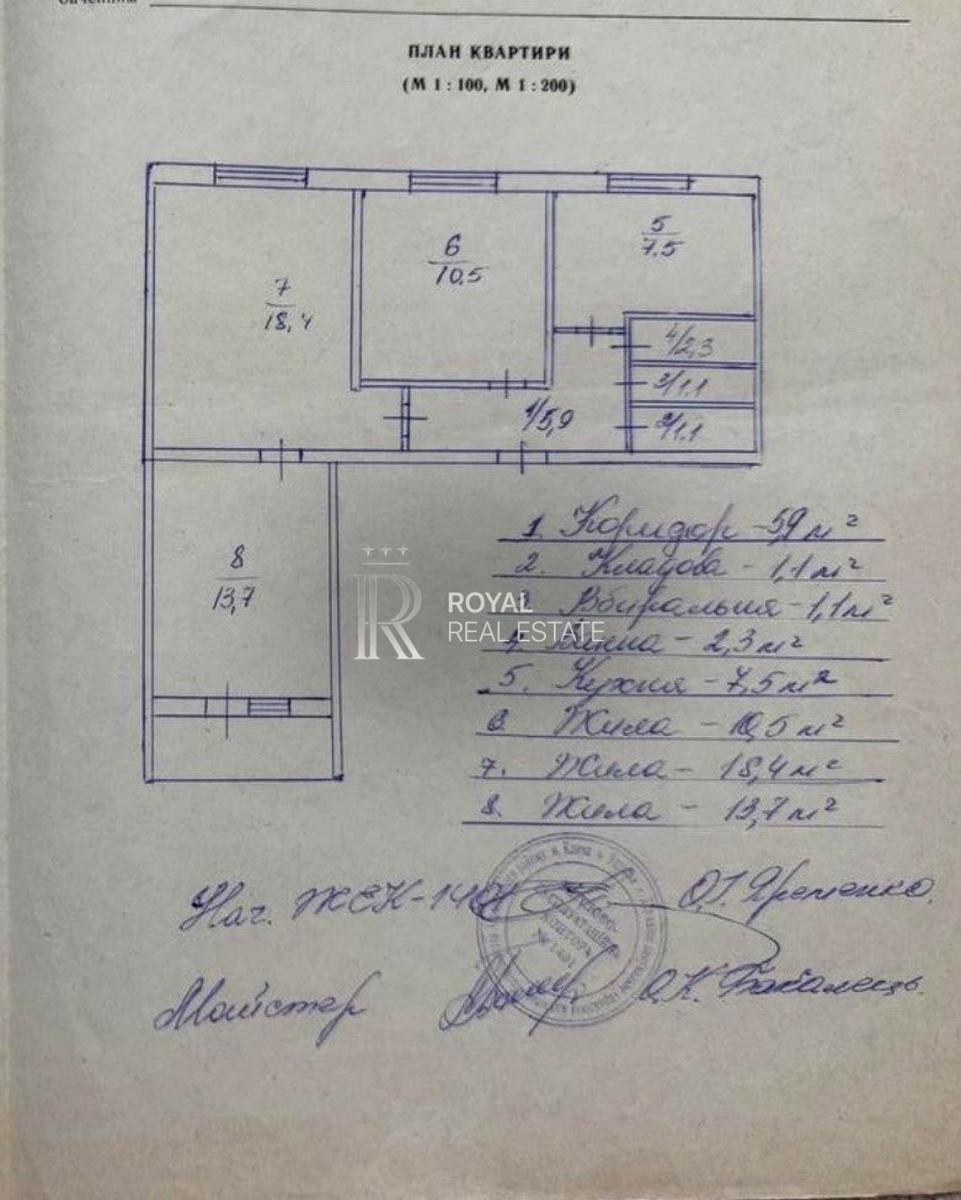 ПЛАН КВАРТИРИ
(М 1 : 100, М 1 : 200)
5
7.5
6
10.5
7
18,4
4/2,3
3/1.1
1/5,9
2/1.1
1. Коридор - 5,9 м²
2. Кладова - 1,1 м²
8
13,7
3. Вбиральня - 1,1 м²
ROYAL
REAL ESTATE
4. Ванна - 2,3 м²
5. Кухня - 7,5 м²
6 Жила - 10,5 м²
7. Жила - 18,4 м²
8. Жила - 13,7 м²
Нач. ЖЕК-1401 О.Г. Яременко.
Майстер О.К. Бабалець.